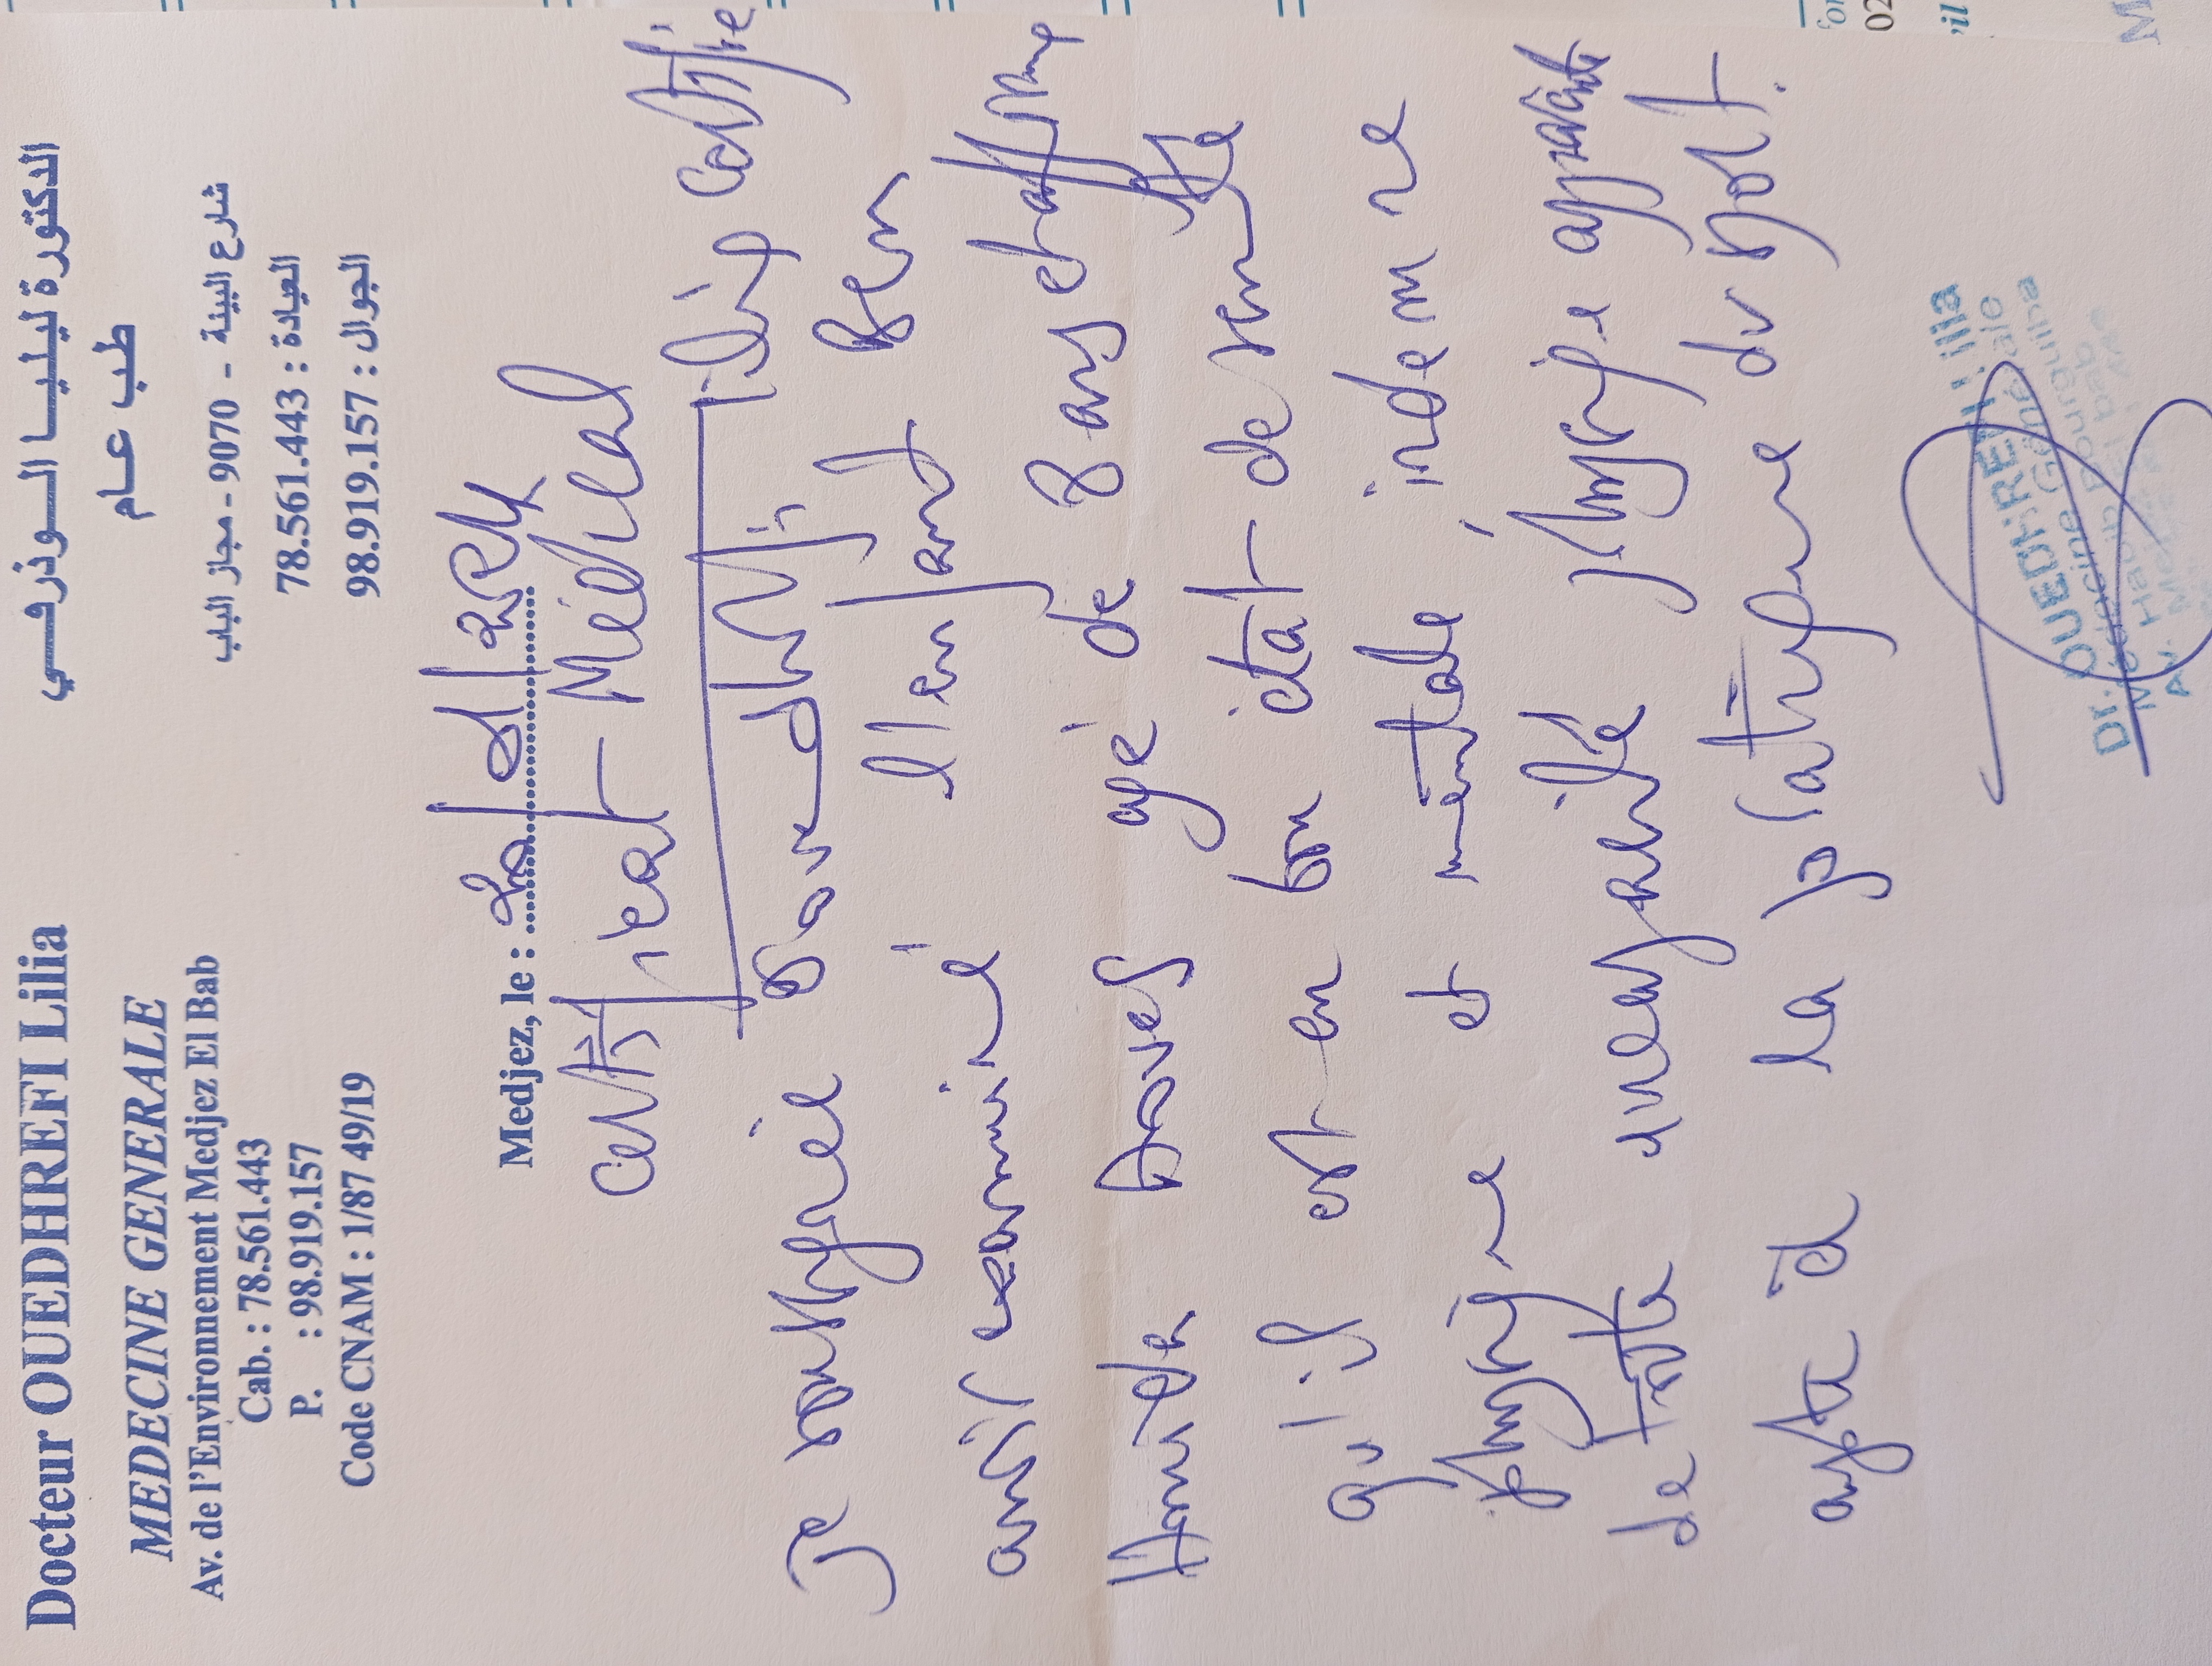 Docteur OUEDHREFI Lilia
MEDECINE GENERALE
Av. de l'Environnement Medjez El Bab
Cab. : 78.561.443
P. : 98.919.157
Code CNAM : 1/87 49/19
الدكتورة ليليا الوذرفي
طب عام
شارع البيئة - 9070 - مجاز الباب
العيادة : 78.561.443
الجوال : 98.919.157
Medjez, le :
Certificat Médical
Je soussignée Dr Ouedhrefi Lilia certifie
avoir examiné l'enfant Ben
Hamida agé de 8 ans et affirme
qu'il est en bon état de santé
physique et mentale, indemne
de toute anomalie physique apparente
apte à la pratique du sport.
Dr. OUEDHREFI Lilia
Médecine Générale